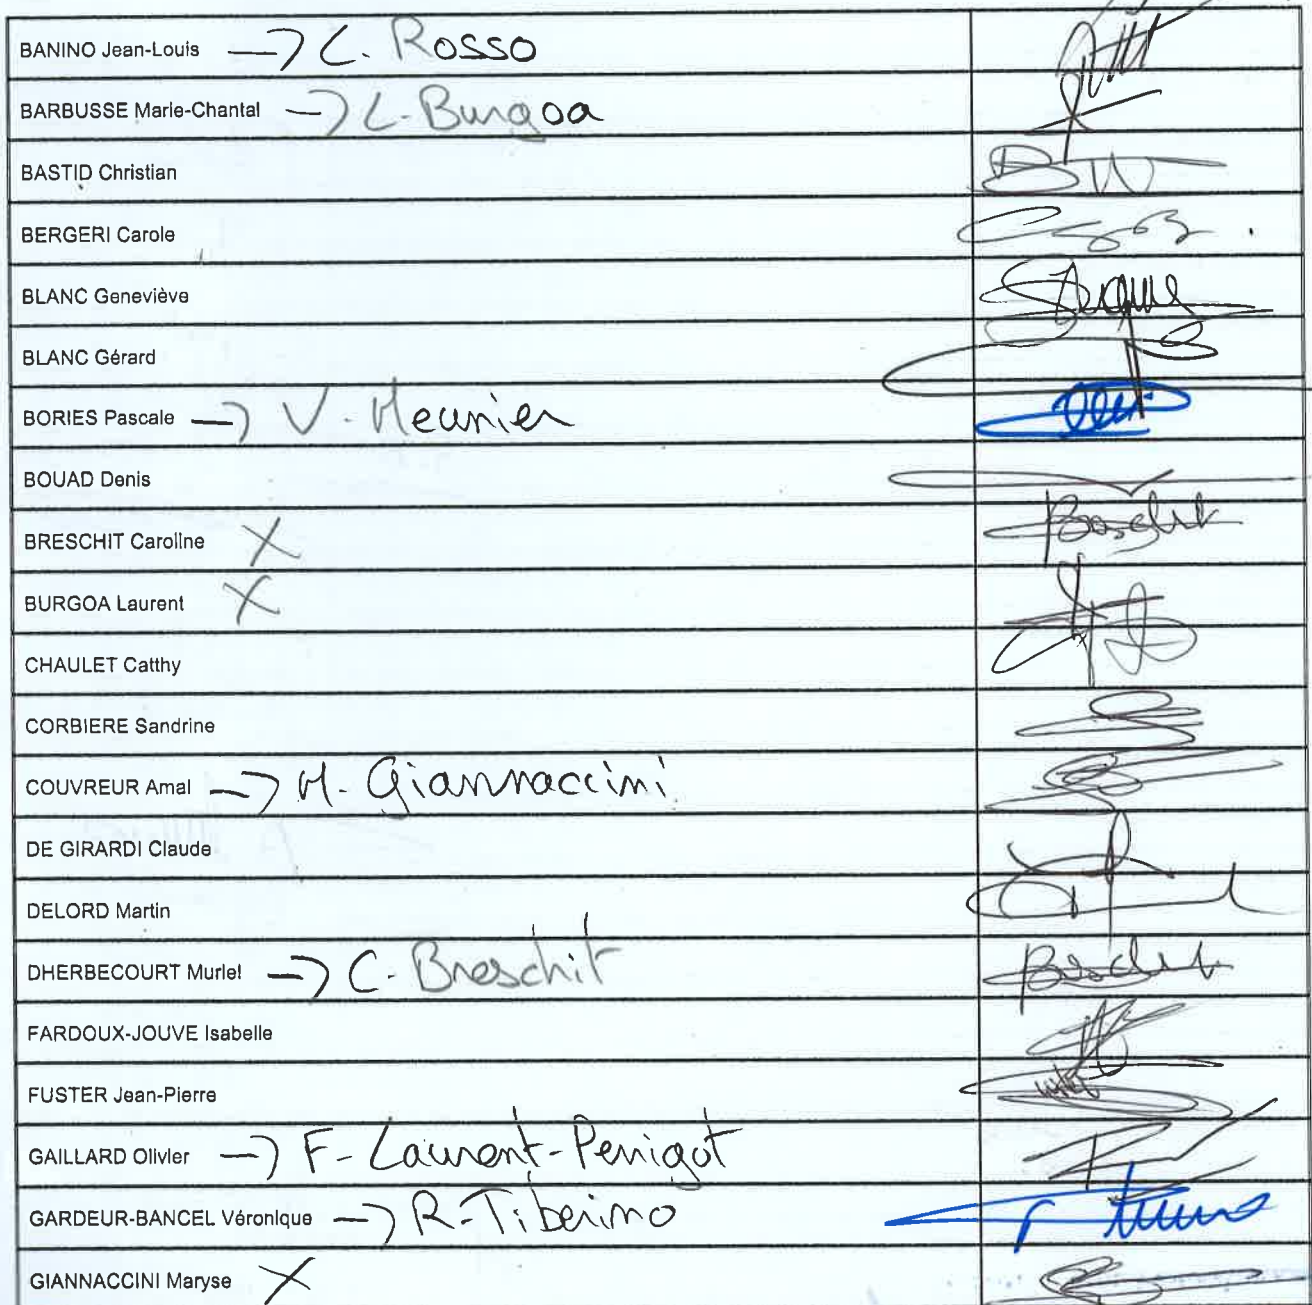 BANINO Jean-Louis → C. Rosso
BARBUSSE Marie-Chantal → L. Burgoa
BASTID Christian
BERGERI Carole
BLANC Geneviève
BLANC Gérard
BORIES Pascale → V. Meunier
BOUAD Denis
BRESCHIT Caroline X
BURGOA Laurent X
CHAULET Catthy
CORBIERE Sandrine
COUVREUR Amal → M. Giannaccini
DE GIRARDI Claude
DELORD Martin
DHERBECOURT Muriel → C. Breschit
FARDOUX-JOUVE Isabelle
FUSTER Jean-Pierre
GAILLARD Olivier → F. Laurent-Perrigot
GARDEUR-BANCEL Véronique → R. Tiberino
GIANNACCINI Maryse X